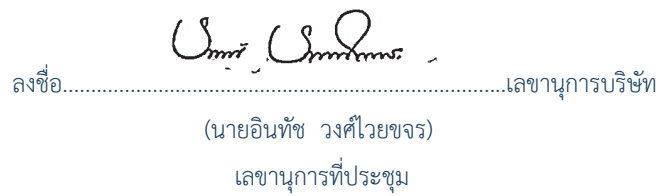 ลงชื่อ....................................................................................เลขานุการบริษัท
(นายอินทัช วงศ์ไวยขจร)
เลขานุการที่ประชุม